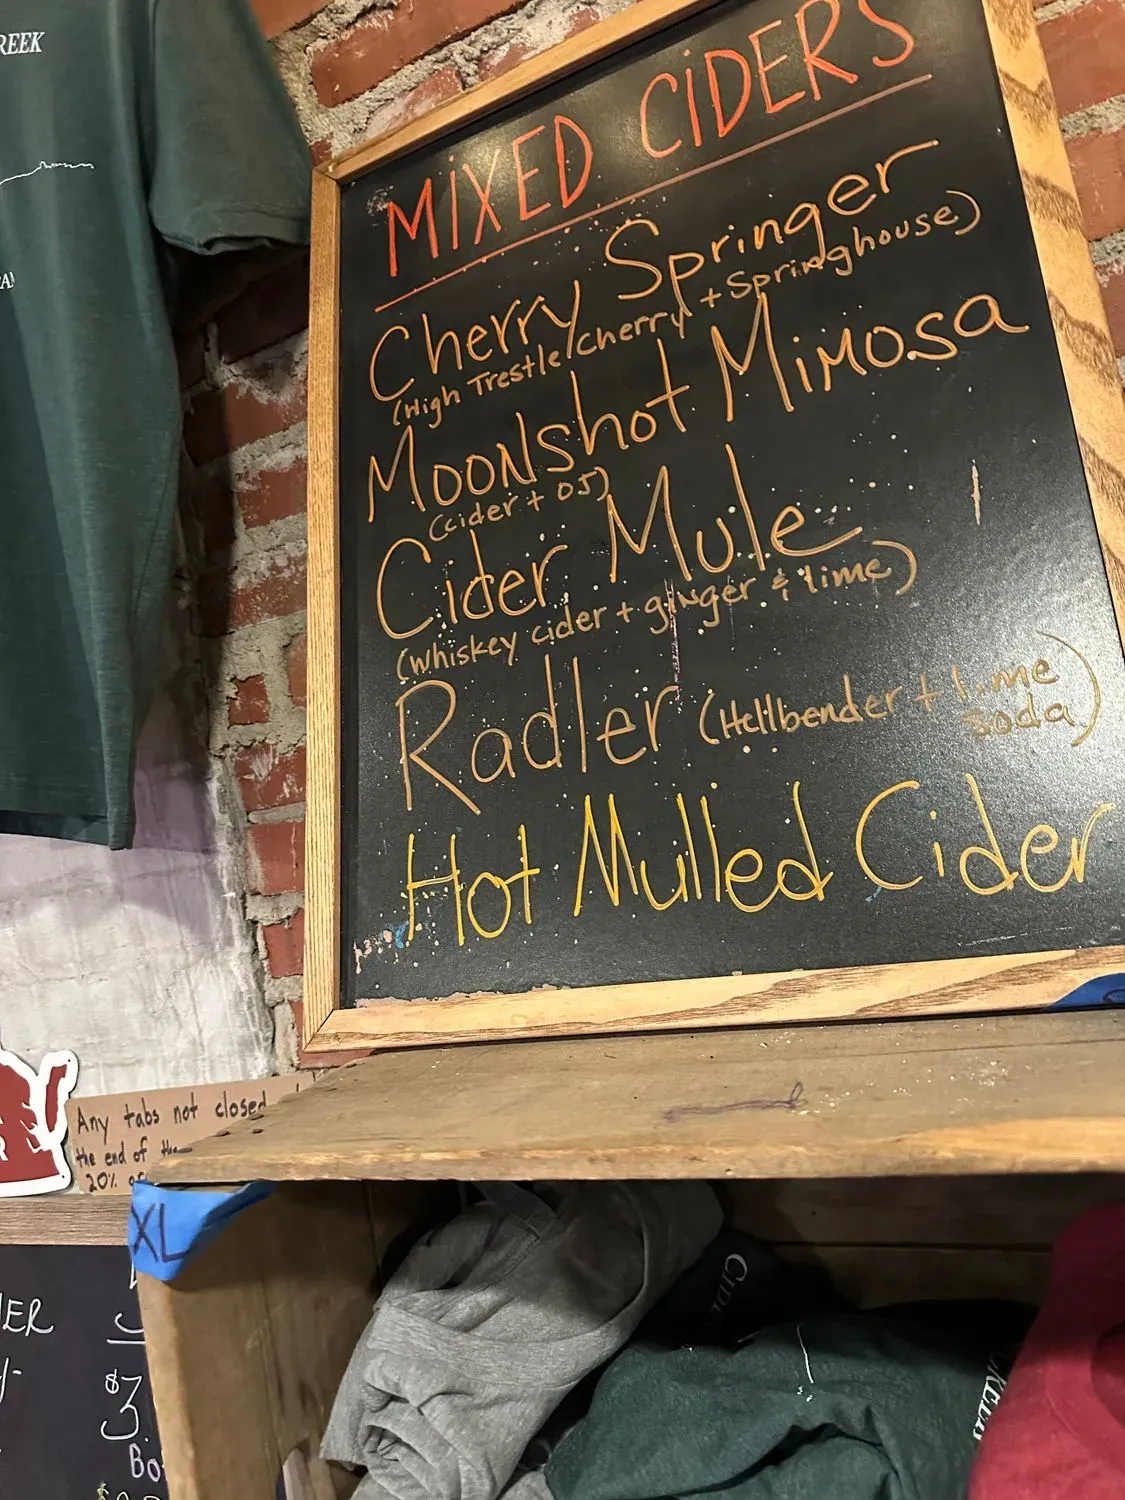 REEK
MIXED CIDERS
Cherry Springer
(High Trestle/cherry + Springhouse)
Moonshot Mimosa
(cider + OJ)
Cider Mule
(whiskey cider + ginger & lime)
Radler (Hellbender + lime
soda)
Hot Mulled Cider
Any tabs not closed
the end of the
20%
XL
CIDE
ER
$3.
Bo